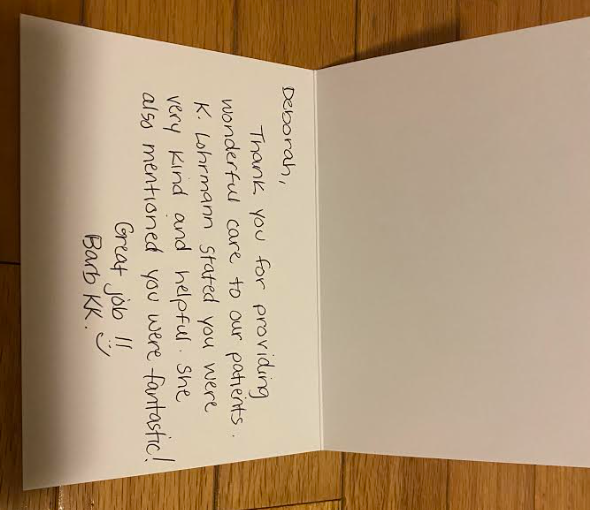 Deborah,
Thank you for providing
wonderful care to our patients.
K. Lohrmann stated you were
very kind and helpful. She
also mentioned you were fantastic!
Great job!!
Barb KK.